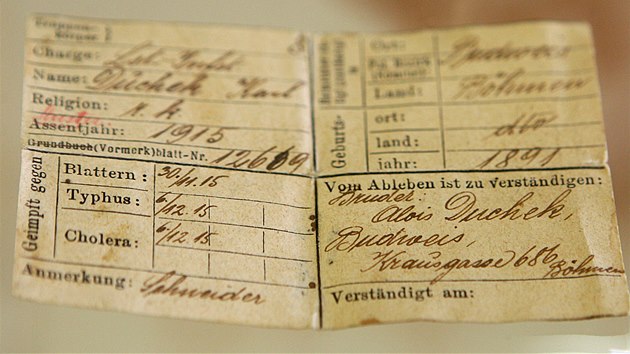 Charge: Lst. Inft
Name: Duchek Karl
Religion: r. k
Assentjahr: 1915
Grundbuch(Vormerk)blatt-Nr. 12669
Geimpft gegen
Blattern: 30/11.15
Typhus: 6/12.15
Cholera: 6/12.15
Anmerkung: Schneider
Ort: Budweis
Land: Böhmen
Geburts-
ort: dto
land:
jahr: 1891
Vom Ableben ist zu verständigen:
Bruder:
Alois Duchek,
Budweis,
Krausgasse 686
Böhmen
Verständigt am: